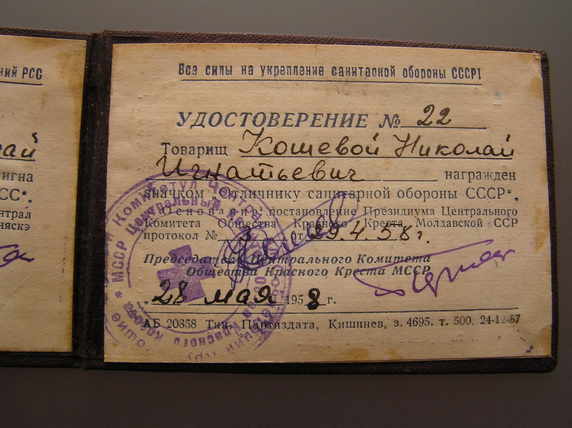 ний РСС
Все силы на укрепление санитарной обороны СССР!
УДОСТОВЕРЕНИЕ № 22
Товарищ Кошевой Николай
Игнатьевич награжден
значком "Отличнику санитарной обороны СССР".
Основание: постановление Президиума Центрального
Комитета Общества Красного Креста Молдавской ССР
протокол № 3 от 29.4.58г.
Председатель Центрального Комитета
Общества Красного Креста МССР
"28" мая 1958 г.
АБ 20358 Тип. Партиздата, Кишинев, з. 4695. т. 500. 24-12-57
ай
игна
СС".
нтрал